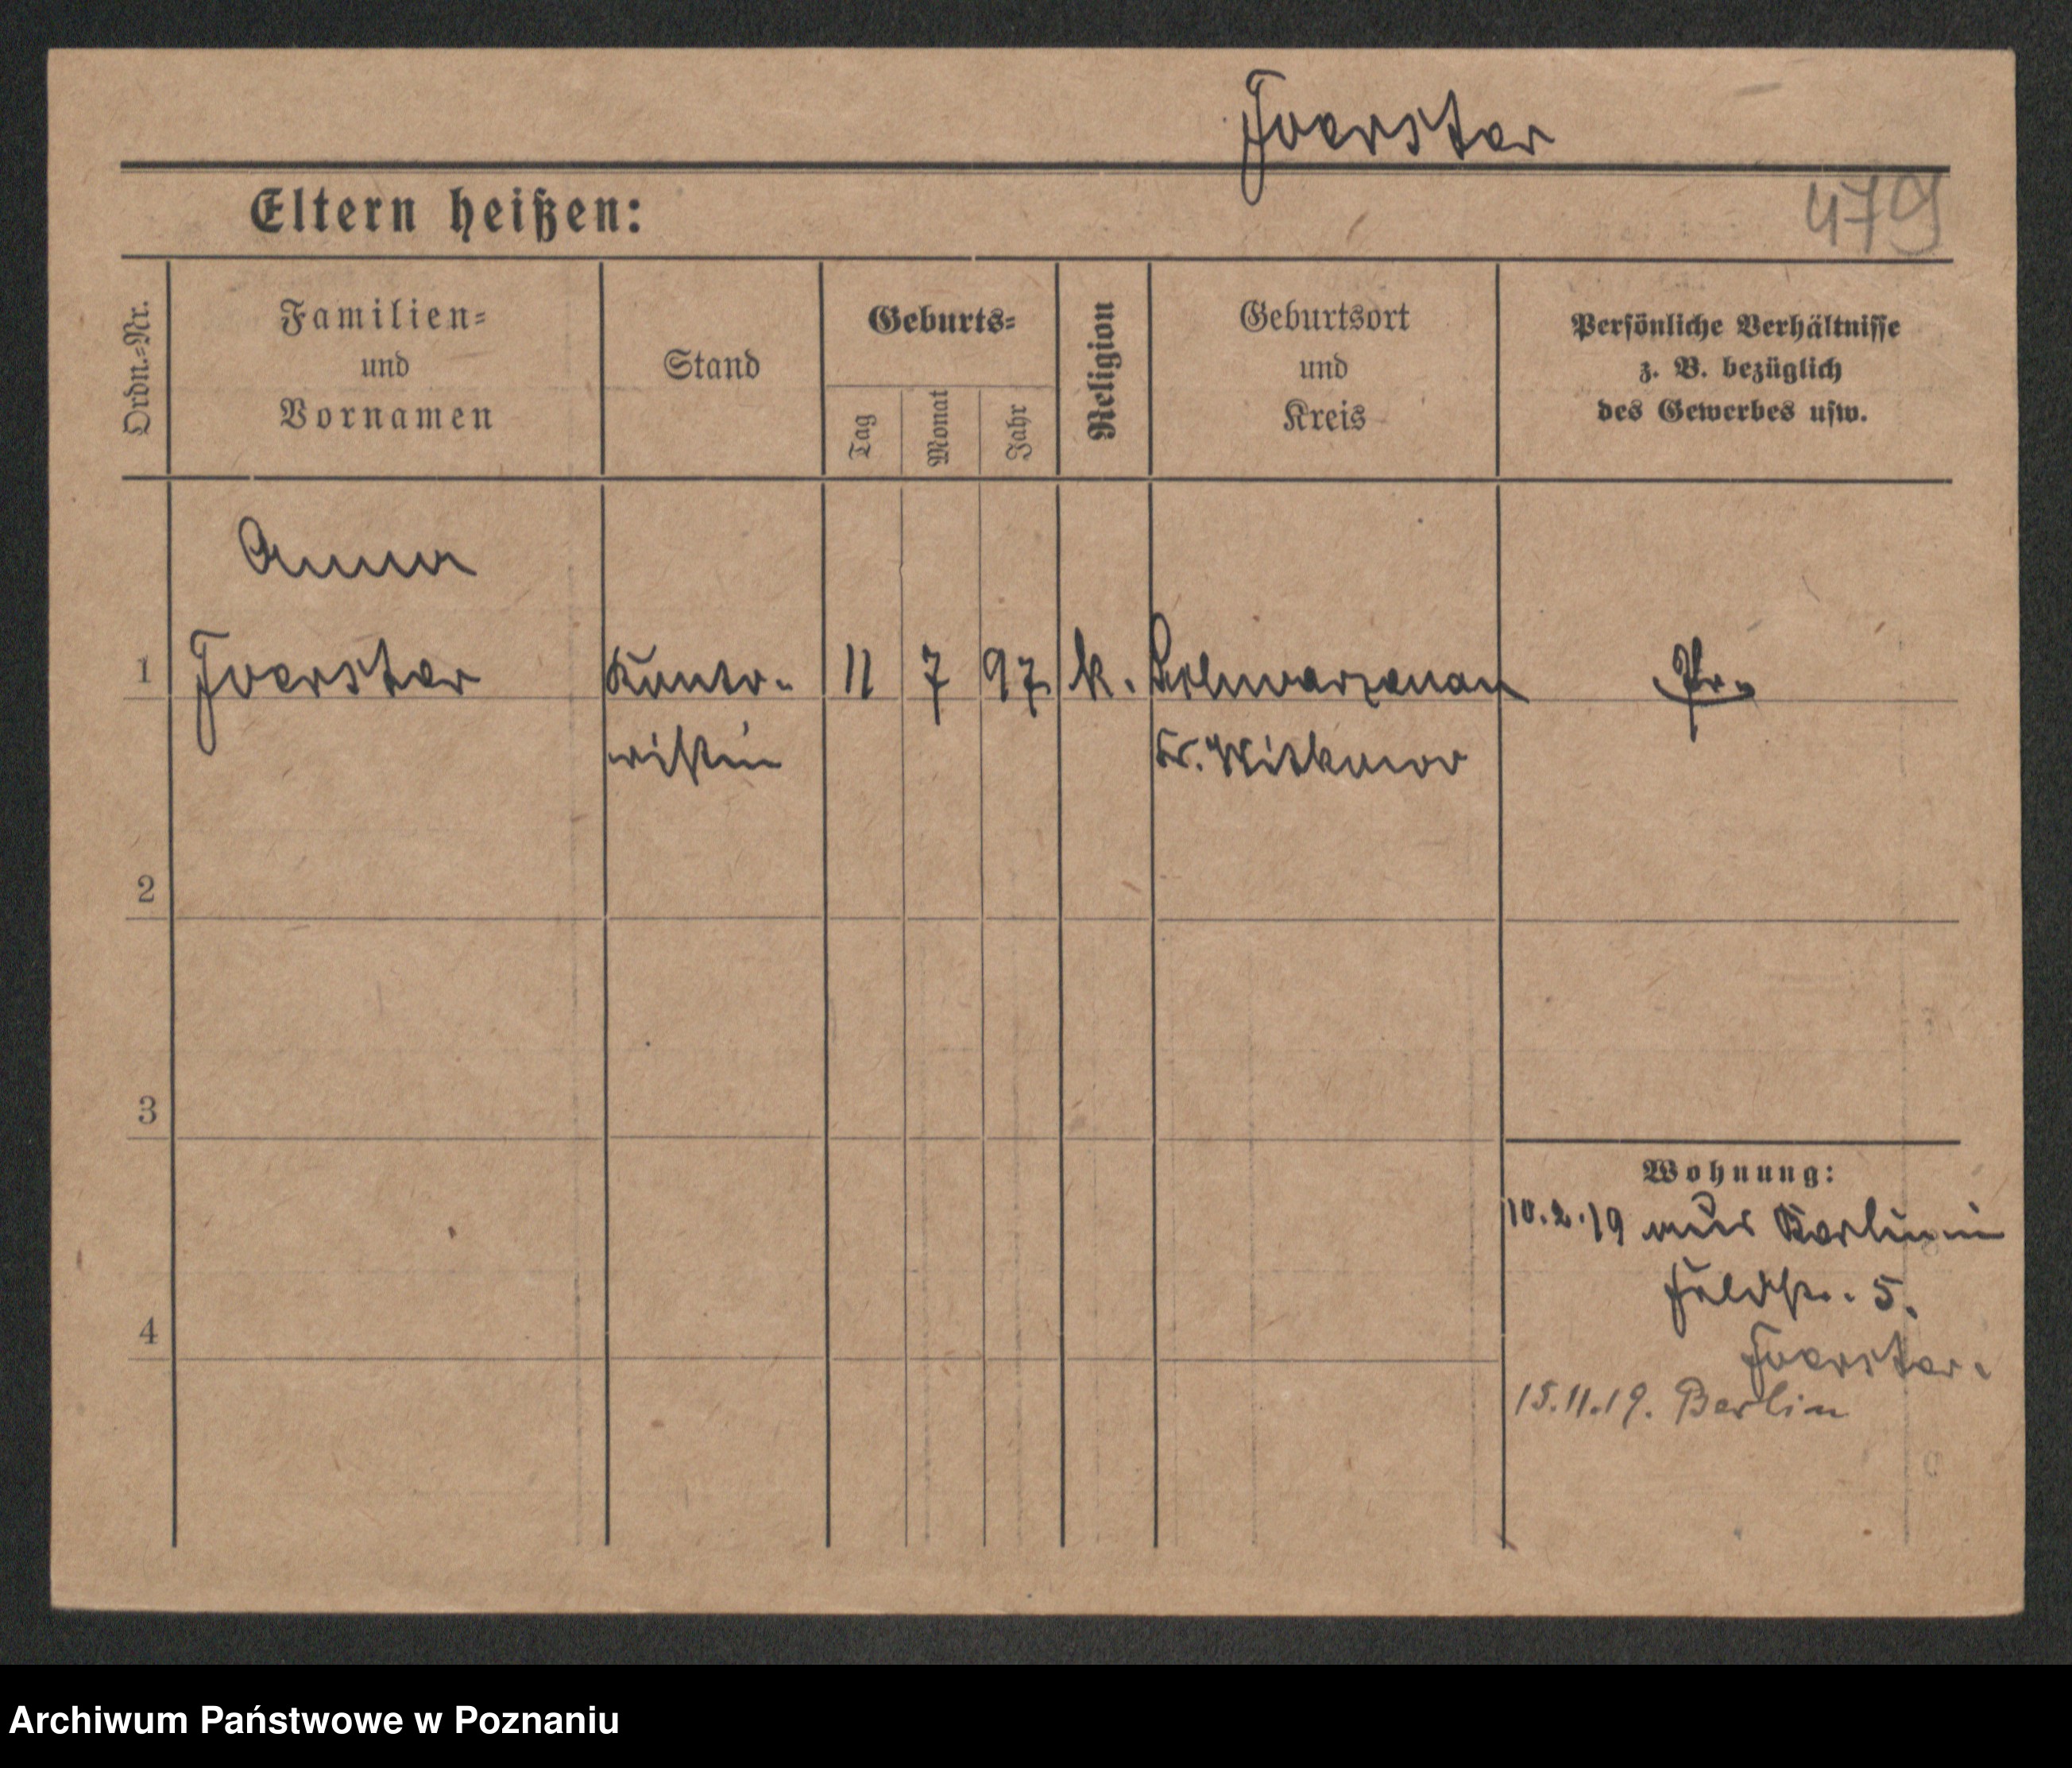 Foerster
Eltern heißen:
479
Ordn.=Nr.
Familien=
und
Vornamen
Stand
Geburts=
Tag
Monat
Jahr
Religion
Geburtsort
und
Kreis
Persönliche Verhältnisse
z. B. bezüglich
des Gewerbes usw.
Anna
1 Foerster Konto- 11 7 97 k. Schwarzenau Pr.
ristin Kr. Witkowo
2
3
4
Wohnung:
10.2.19 aus Berlin in
Feldstr. 5.
Foerster.
15.11.19. Berlin
Archiwum Państwowe w Poznaniu